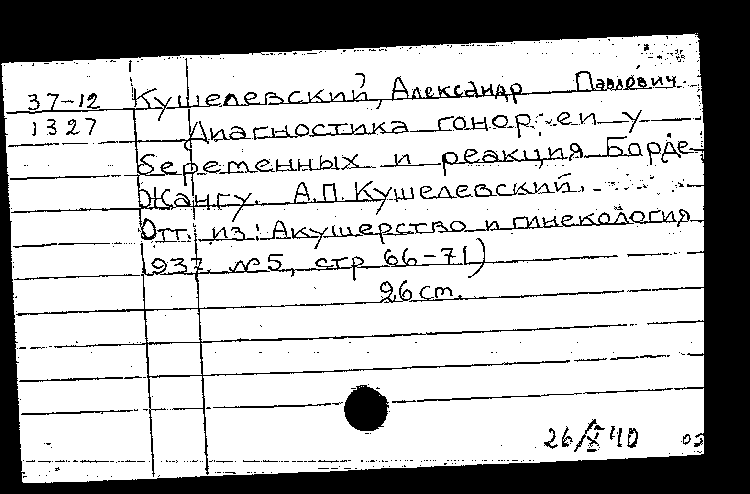 37-12 Кушелевский, Александр Павлович.
1327 Диагностика гонорреи у
беременных и реакция Борде-
Жангу. А.П. Кушелевский.
Отт. из: Акушерство и гинекология
1937 №5, стр 66-71)
26 cm.
26/X 40 05